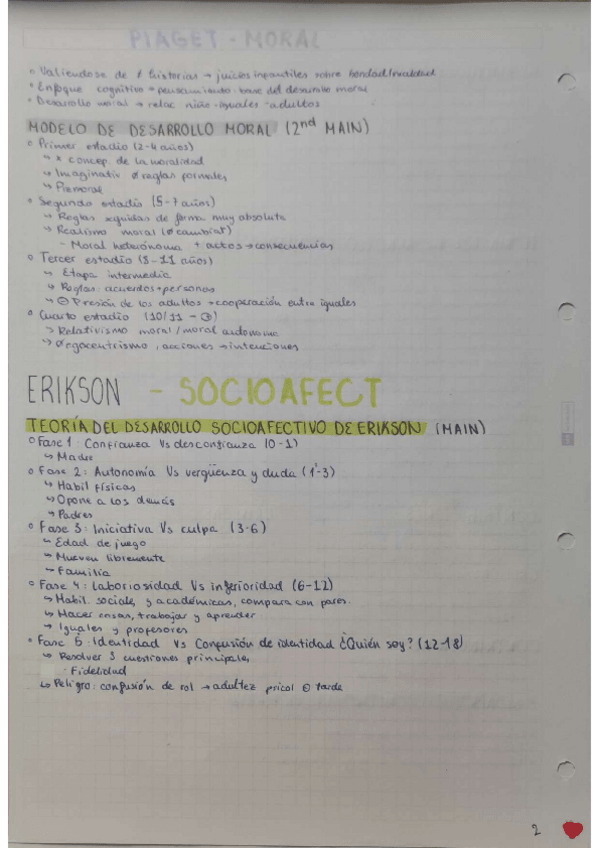 PIAGET - MORAL
° Valiéndose de ≠ historias → juicios infantiles sobre bondad/maldad
° Enfoque cognitivo → pensamiento base del desarrollo moral
° Desarrollo moral → relac niño-iguales-adultos
MODELO DE DESARROLLO MORAL (2nd MAIN)
° Primer estadio (2-4 años)
↳ x concep. de la moralidad
↳ Imaginativ ∅ reglas formales
↳ Premoral
° Segundo estadio (5-7 años)
↳ Reglas seguidas de forma muy absoluta
↳ Realismo moral (∅ cambiar)
- Moral heterónoma + actos → consecuencias
° Tercer estadio (8-11 años)
↳ Etapa intermedia
↳ Reglas: acuerdos + personas
↳ ⊖ Presión de los adultos + cooperación entre iguales
° Cuarto estadio (10/11 - )
↳ Relativismo moral/moral autónoma
↳ ∅ egocentrismo, acciones → intenciones
ERIKSON - SOCIOAFECT
TEORÍA DEL DESARROLLO SOCIOAFECTIVO DE ERIKSON (MAIN)
° Fase 1: Confianza Vs desconfianza (0-1)
↳ Madre
° Fase 2: Autonomía Vs vergüenza y duda (1-3)
↳ Habil físicas
↳ Opone a los demás
↳ Padres
° Fase 3: Iniciativa Vs culpa (3-6)
↳ Edad de juego
↳ Mueven libremente
↳ Familia
° Fase 4: Laboriosidad Vs inferioridad (6-12)
↳ Habil. sociale, y académicas, compara con pares.
↳ Hacer cosas, trabajar y aprender
↳ Iguales y profesores
° Fase 5: Identidad Vs Confusión de identidad ¿Quién soy? (12-18)
↳ Resolver 3 cuestiones principales
· Fidelidad
↳ Peligro: confusión de rol → adultez psicol ⊖ tarde
2